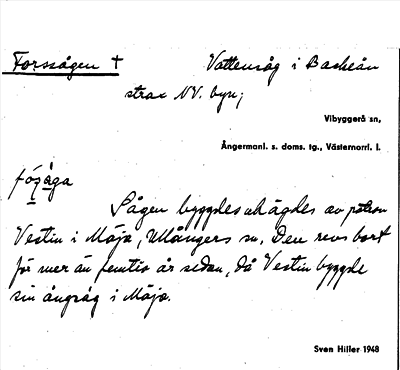 Forssågen † Vattensåg i Backeån
strax NV. byn;
Vibyggerå sn,
Ångermanl. s. doms. tg., Västernorrl. l.
fósåga
Sågen byggdes och ägdes av patron
Vestin i Mäja, Ullångers sn. Den revs bort
för mer än femtio år sedan, då Vestin byggde
sin ångsåg i Mäja.
Sven Hiller 1948